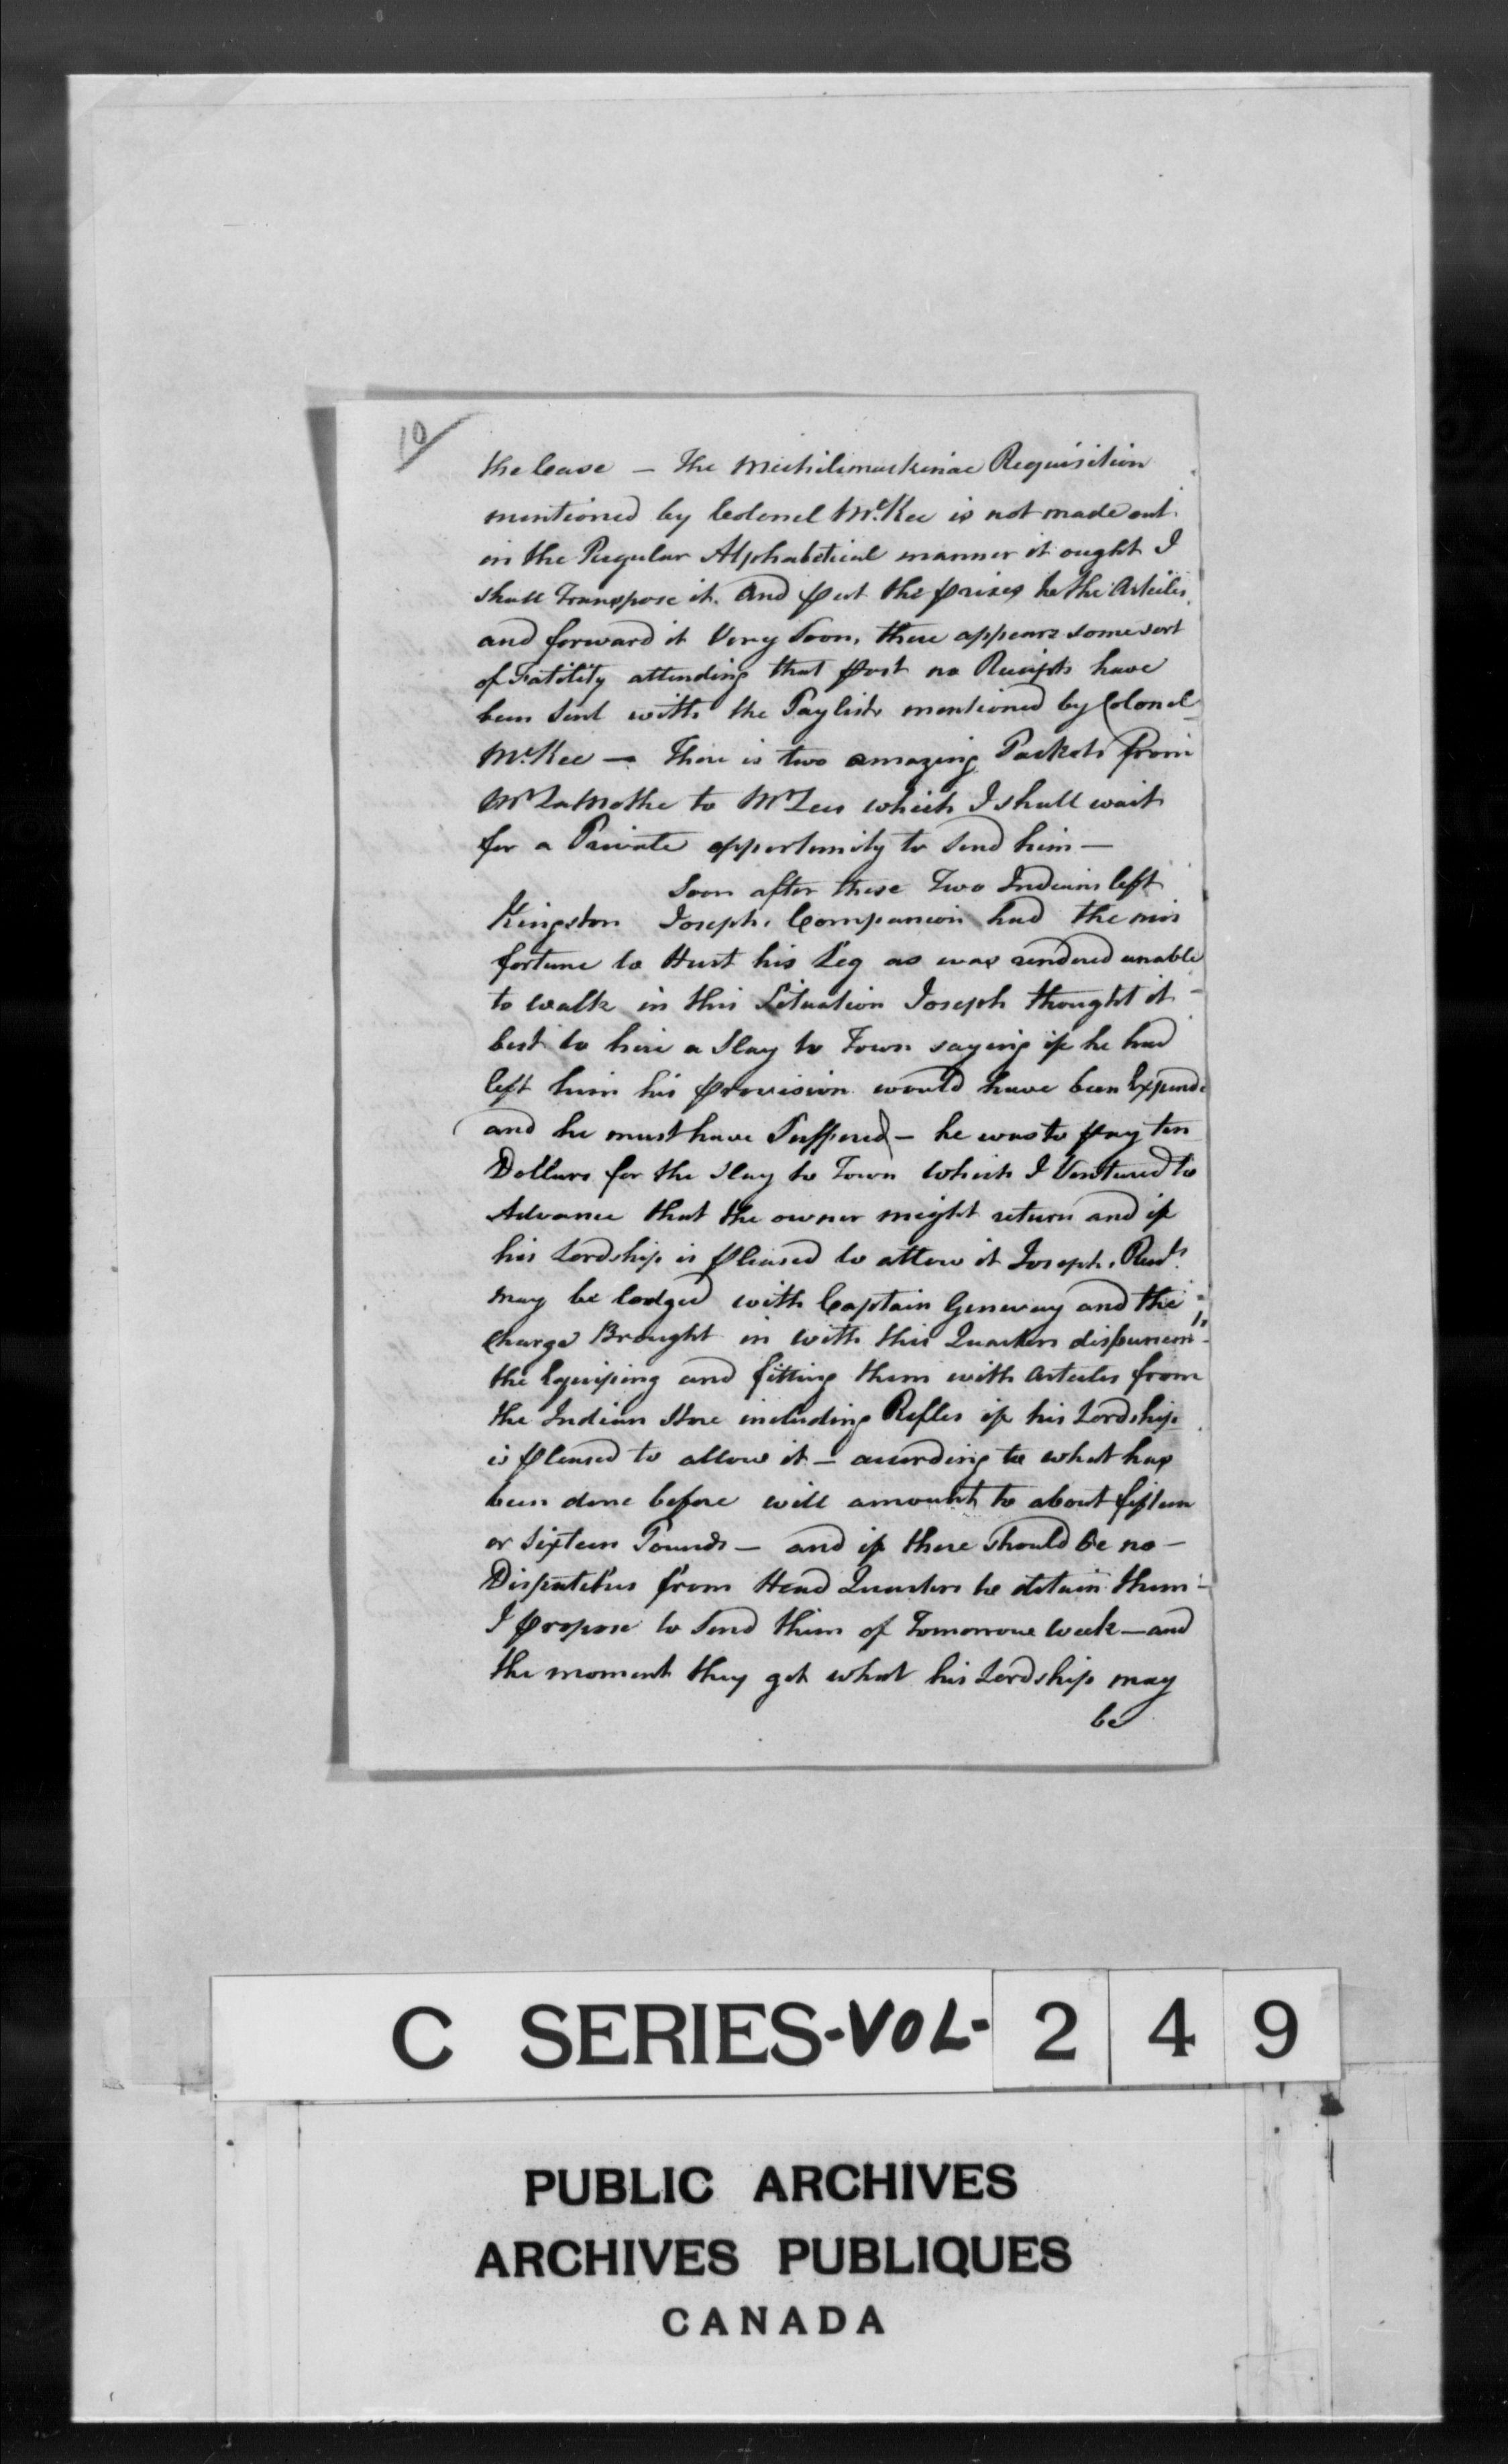 10/
the Case — The Michilimackinac Requisition
mentioned by Colonel McKee is not made out
in the Regular Alphabetical manner it ought I
shall Transpose it. And put the prises to the Articles
and forward it Very Soon, there appears some sort
of Fatility attending that post no Receipts have
been Sent with the Paylists mentioned by Colonel
McKee — There is two amazing Packets from
Mr LaMothe to Mr Lees which I shall wait
for a Private opportunity to Send him —
Soon after these Two Indians left
Kingston Joseph's Companion had the mis
fortune to Hurt his Leg as was rendered unable
to walk in this Situation Joseph thought it
best to hire a Slay to Town saying if he had
left him his provision would have been Expended
and he must have Suffered — he was to pay ten
Dollars for the Slay to Town which I Ventured to
Advance that the owner might return and if
his Lordship is pleased to allow it Joseph's Rect.
may be lodged with Captain Geneway and the
Charge Brought in with this Quarters disbursemts
the Equiping and fitting them with Articles from
the Indian Store including Rifles if his Lordship
is pleased to allow it — according to what has
been done before will amount to about fifteen
or Sixteen Pounds — and if there should be no —
Dispatches from Head Quarters to detain them —
I propose to Send them of Tomorrow week — and
the moment they get what his Lordship may
be
C SERIES-VOL- 2 4 9
PUBLIC ARCHIVES
ARCHIVES PUBLIQUES
CANADA